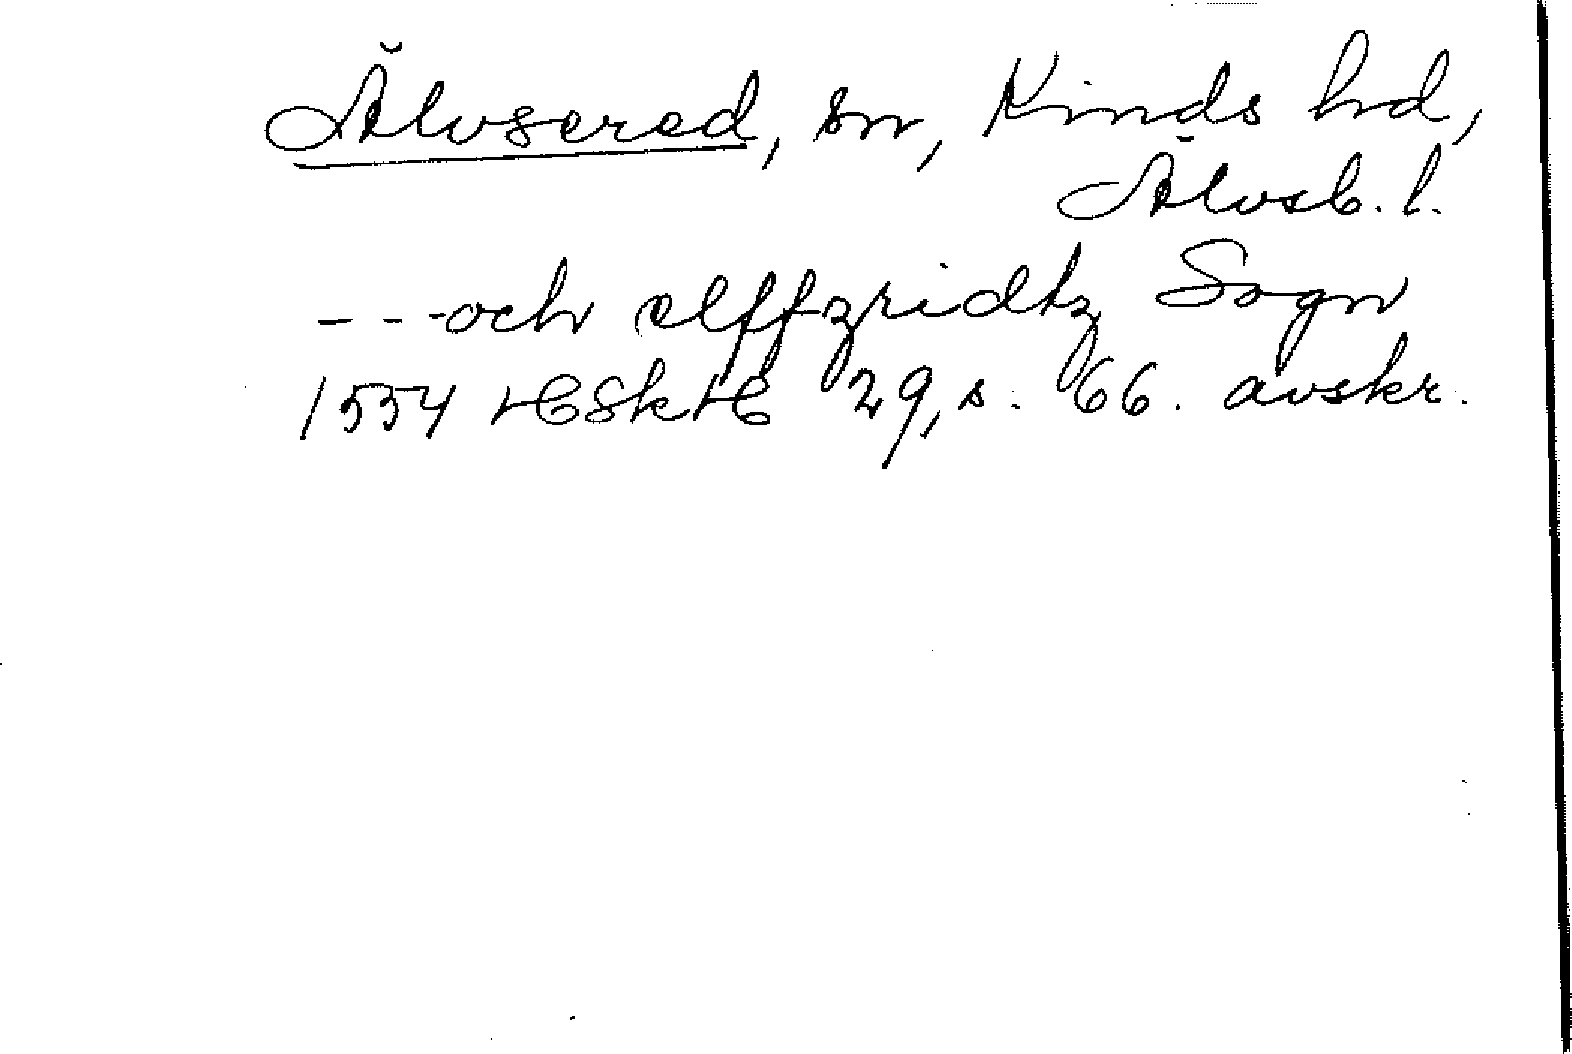 Älvsered, sn, Kinds hd,
Älvsb. l.
- - - och elffzridtz Sogn
1554 HSkH 29, s. 66. avskr.